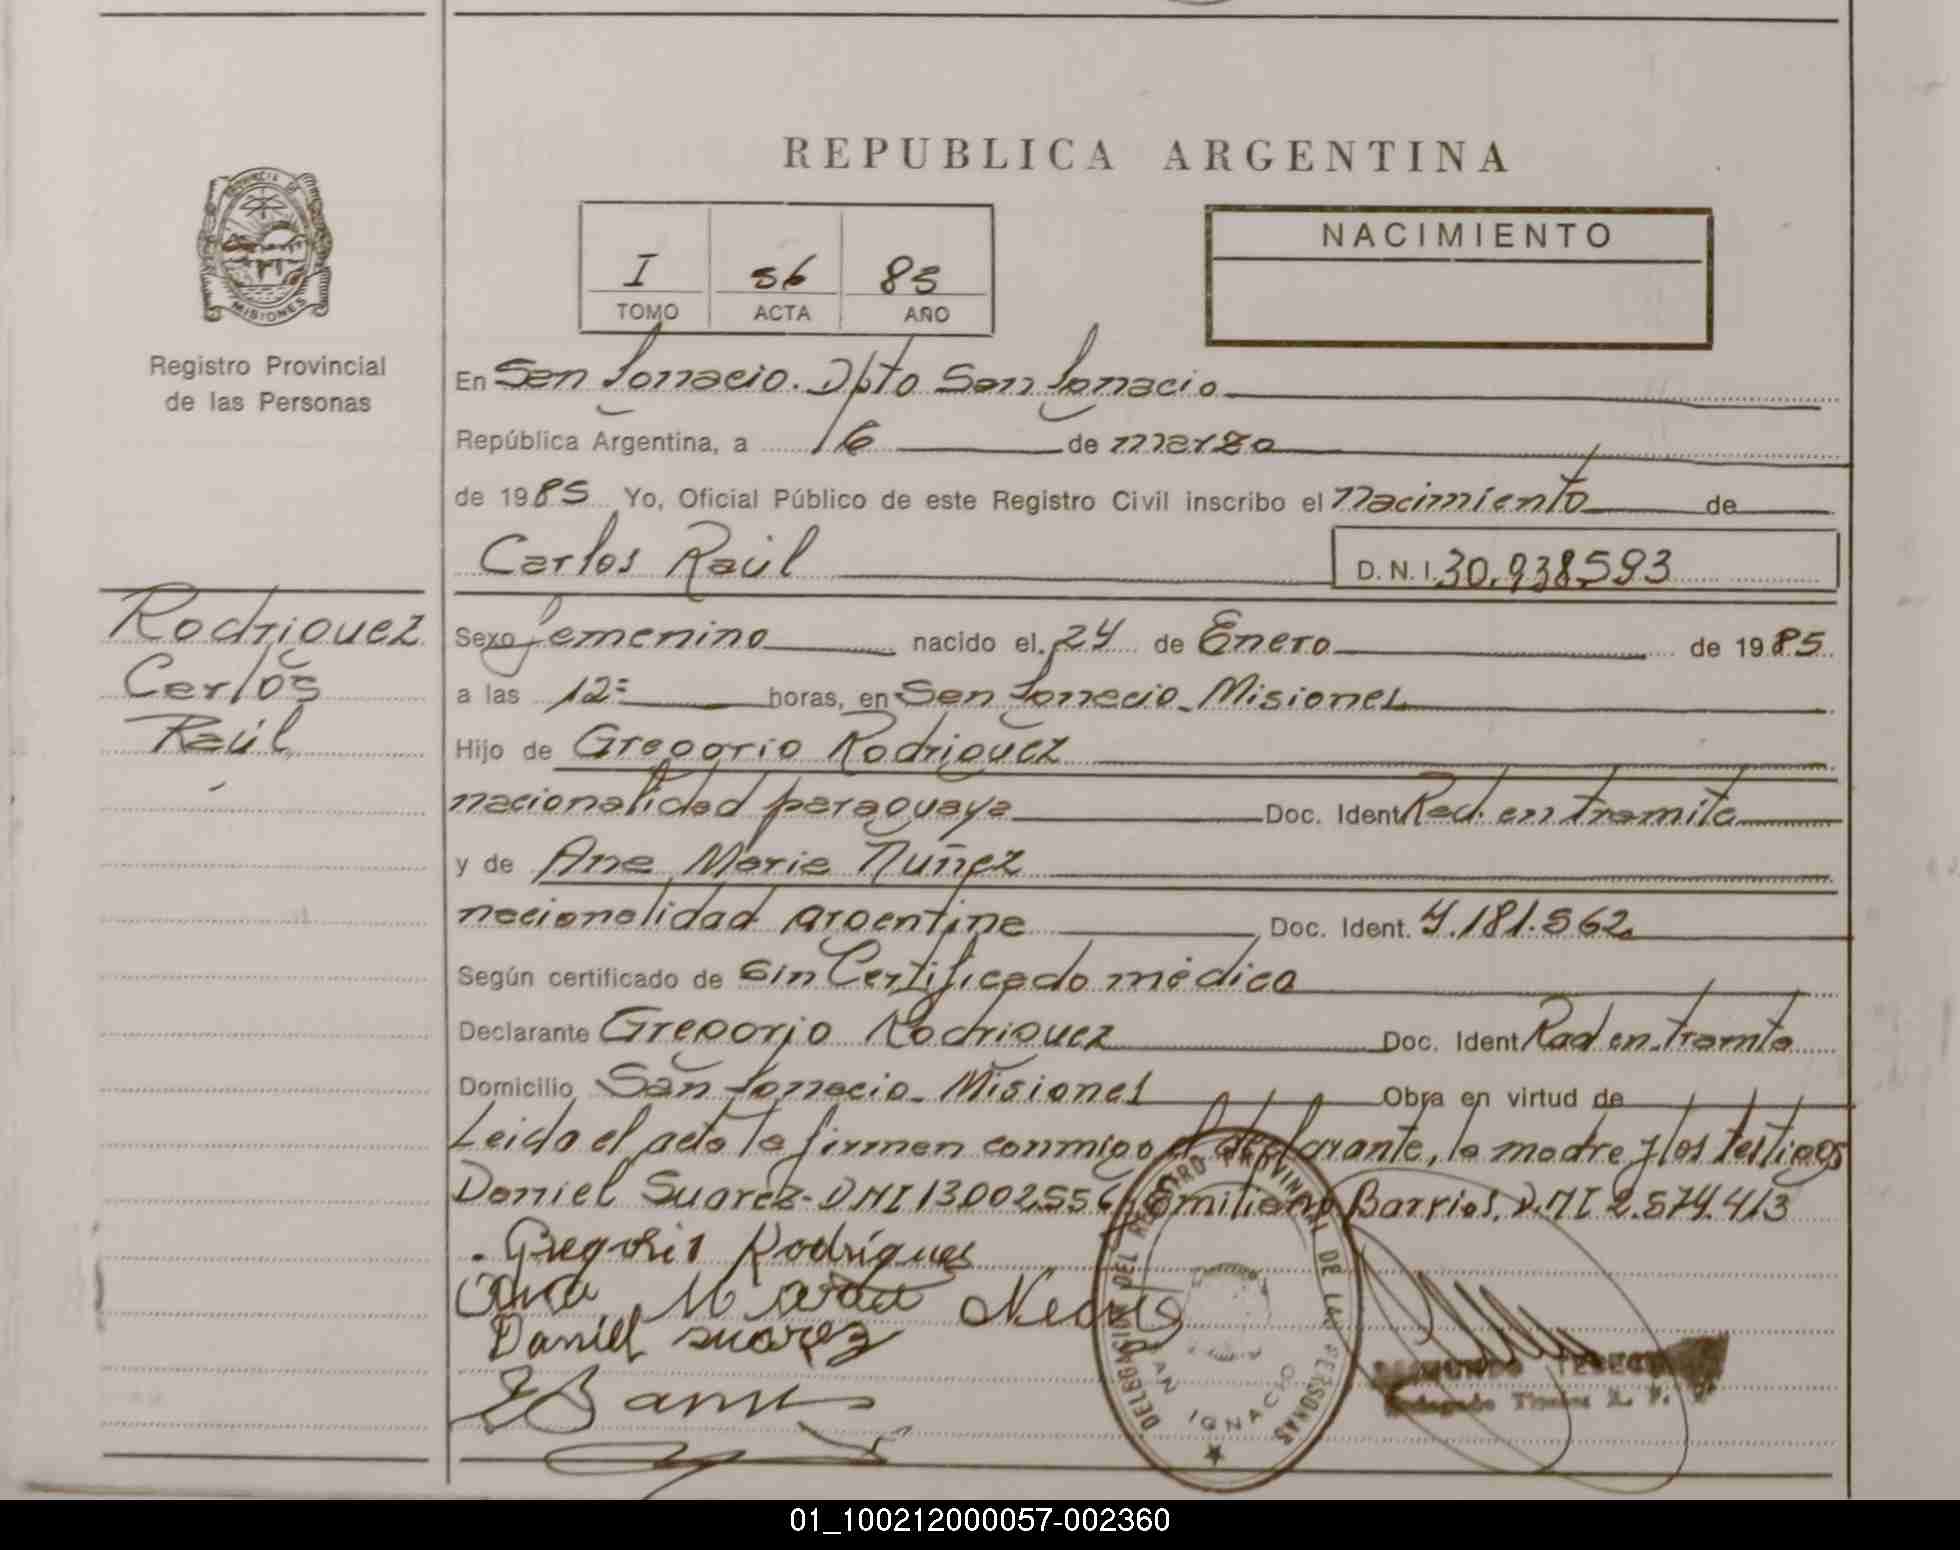 REPUBLICA ARGENTINA
PROVINCIA DE
MISIONES
Registro Provincial
de las Personas
I 56 85
TOMO ACTA AÑO
NACIMIENTO
En San Ignacio. Dpto San Ignacio
República Argentina, a 16 de marzo
de 1985 Yo, Oficial Público de este Registro Civil inscribo el nacimiento de
Carlos Raúl D.N.I. 30.938593
Rodriguez
Carlos
Raúl
Sexo femenino nacido el 24 de Enero de 1985
a las 12= horas, en San Ignacio. Misiones
Hijo de Gregorio Rodriguez
nacionalidad paraguaya Doc. Ident Rad. en tramite
y de Ana Maria Nuñez
nacionalidad argentina Doc. Ident. 4.181.562
Según certificado de Sin Certificado médico
Declarante Gregorio Rodriguez Doc. Ident Rad en tramte
Domicilio San Ignacio. Misiones Obra en virtud de
Leida el acta la firman conmigo el declarante, la madre y los testigos
Daniel Suarez-DNI 13002556 y Emiliano Barrios, D.NI 2.574.413
Gregorio Rodrígues
Ana Maria
Daniel suarez
DELEGACION DEL REGISTRO PROVINCIAL DE LAS PERSONAS
SAN IGNACIO
01_100212000057-002360